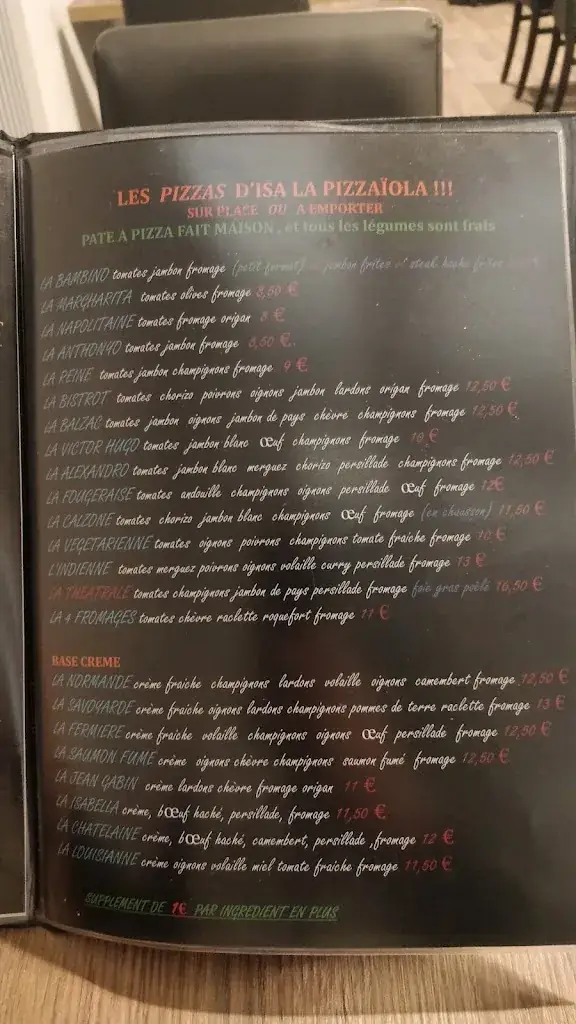 LES PIZZAS D'ISA LA PIZZAÏOLA !!!
SUR PLACE OU A EMPORTER
PATE A PIZZA FAIT MAISON , et tous les légumes sont frais
LA BAMBINO tomates jambon fromage (petit format) jambon frites steak haché frites
LA MARGHARITA tomates olives fromage 8,50 €
LA NAPOLITAINE tomates fromage origan 8 €
LA ANTHONYO tomates jambon fromage 8,50 €
LA REINE tomates jambon champignons fromage 9 €
LA BISTROT tomates chorizo poivrons oignons jambon lardons origan fromage 12,50 €
LA BALZAC tomates jambon oignons jambon de pays chèvre champignons fromage 12,50 €
LA VICTOR HUGO tomates jambon blanc œuf champignons fromage 10 €
LA ALEXANDRO tomates jambon blanc merguez chorizo persillade champignons fromage 12,50 €
LA FOUGERAISE tomates andouille champignons oignons persillade œuf fromage 12€
LA CALZONE tomates chorizo jambon blanc champignons œuf fromage (en chausson) 11,50 €
LA VEGETARIENNE tomates oignons poivrons champignons tomate fraiche fromage 10 €
L'INDIENNE tomates merguez poivrons oignons volaille curry persillade fromage 13 €
LA THEATRALE tomates champignons jambon de pays persillade fromage foie gras poêlé 16,50 €
LA 4 FROMAGES tomates chèvre raclette roquefort fromage 11 €
BASE CREME
LA NORMANDE crème fraiche champignons lardons volaille oignons camembert fromage 12,50 €
LA SAVOYARDE crème fraiche oignons lardons champignons pommes de terre raclette fromage 13 €
LA FERMIERE crème fraiche volaille champignons oignons œuf persillade fromage 12,50 €
LA SAUMON FUMÉ crème oignons chèvre champignons saumon fumé fromage 12,50 €
LA JEAN GABIN crème lardons chèvre fromage origan 11 €
LA ISABELLA crème, bœuf haché, persillade, fromage 11,50 €
LA CHATELAINE crème, bœuf haché, camembert, persillade ,fromage 12 €
LA LOUISIANNE crème oignons volaille miel tomate fraiche fromage 11,50 €
SUPPLEMENT DE 1€ PAR INGREDIENT EN PLUS